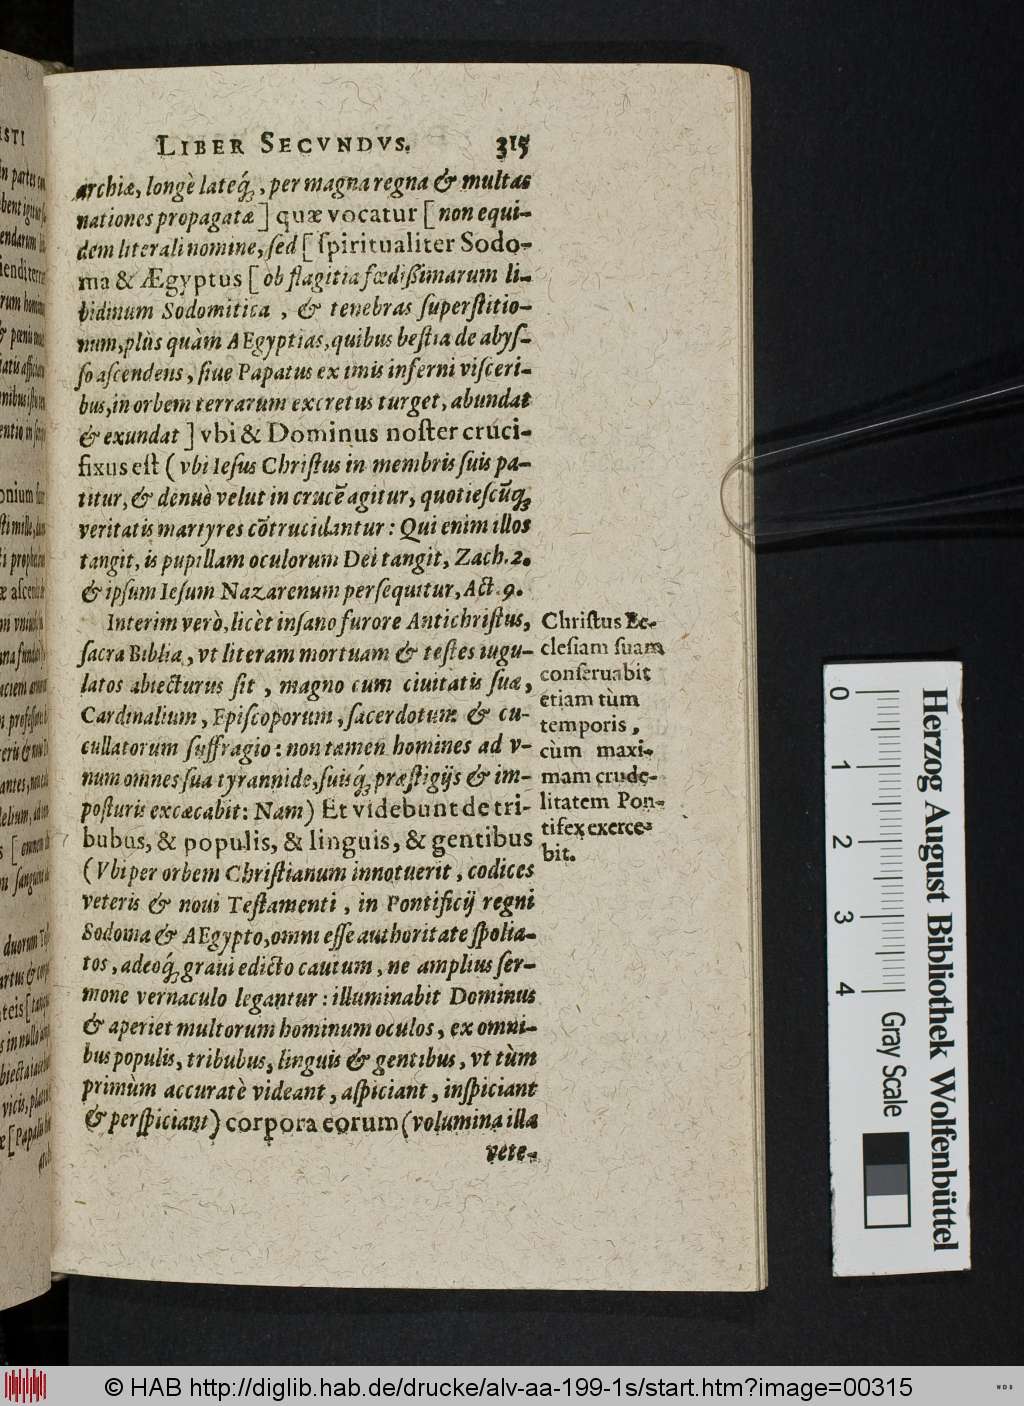 LIBER SECVNDVS. 315
archiæ, longè lateq́;, per magna regna & multas
nationes propagatæ] quæ vocatur [non equi-
dem literali nomine, ſed [ſpiritualiter Sodo-
ma & Ægyptus [ob flagitia fœdißimarum li-
bidinum Sodomitica, & tenebras ſuperſtitio-
num, plùs quàm AEgyptias, quibus beſtia de abyſ-
ſo aſcendens, ſiue Papatus ex imis inferni viſceri-
bus, in orbem terrarum excretus turget, abundat
& exundat] vbi & Dominus noſter cruci-
fixus eſt (vbi Ieſus Chriſtus in membris ſuis pa-
titur, & denuò velut in crucē agitur, quotieſcũq;
veritatis martyres cõtrucidantur: Qui enim illos
tangit, is pupillam oculorum Dei tangit, Zach. 2.
& ipſum Ieſum Nazarenum perſequitur, Act. 9.
Interim verò, licèt inſano furore Antichriſtus,
ſacra Biblia, vt literam mortuam & teſtes iugu-
latos abiecturus ſit, magno cum ciuitatis ſuæ,
Cardinalium, Epiſcoporum, ſacerdotum & cu-
cullatorum ſuffragio: non tamen homines ad v-
num omnes ſua tyrannide, ſuisq́; præſtigijs & im-
poſturis excæcabit: Nam) Et videbunt de tri-
bubus, & populis, & linguis, & gentibus
(Vbi per orbem Chriſtianum innotuerit, codices
veteris & noui Teſtamenti, in Pontificij regni
Sodoma & AEgypto, omni eſſe authoritate ſpolia-
tos, adeoq́; graui edicto cautum, ne amplius ſer-
mone vernaculo legantur: illuminabit Dominus
& aperiet multorum hominum oculos, ex omni-
bus populis, tribubus, linguis & gentibus, vt tùm
primùm accuratè videant, aſpiciant, inſpiciant
& perſpiciant) corpora eorum (volumina illa
vete-
Chriſtus Ec-
cleſiam ſuam
conſeruabit
etiam tùm
temporis,
cùm maxi-
mam crude-
litatem Pon-
tifex exerce-
bit.
0 1 2 3 4
Gray Scale
Herzog August Bibliothek Wolfenbüttel
© HAB http://diglib.hab.de/drucke/alv-aa-199-1s/start.htm?image=00315